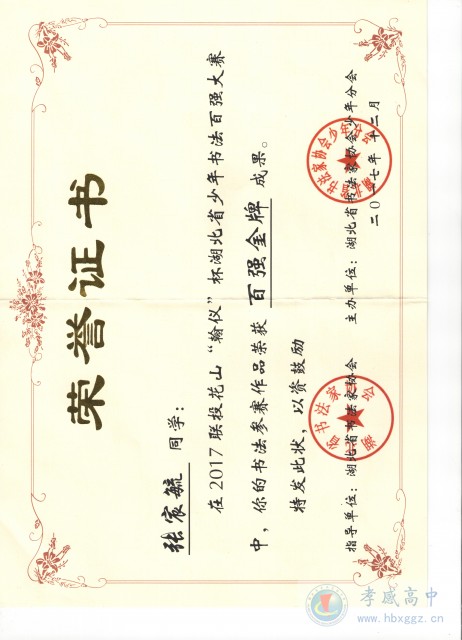 荣誉证书
张宸毓 同学：
在2017联投花山“翰仪”杯湖北省少年书法百强大赛
中，你的书法参赛作品荣获 百强金牌 成果。
特发此状，以资鼓励
指导单位：湖北省书法家协会 主办单位：湖北省书法家协会少年分会
二〇一七年十二月
孝感高中
www.hbxggz.cn